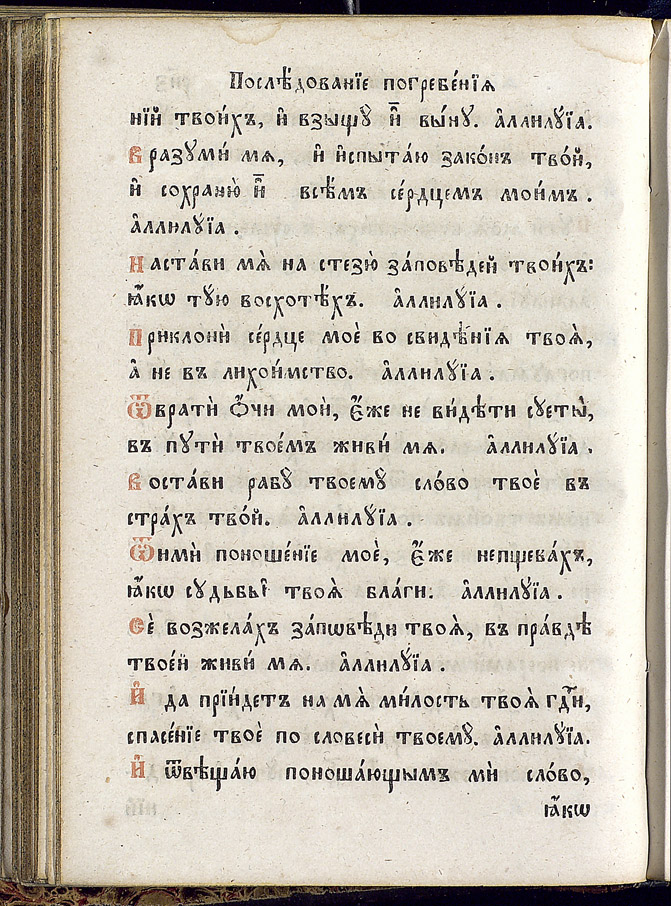 Послѣ́дованїе погребе́нїѧ
нїй твои́хъ, и҆ взыщꙋ̀ и҆̀ вы́нꙋ. а҆ллилꙋ́їа.
Вразꙋми́ мѧ, и҆ и҆спыта́ю зако́нъ тво́й,
и҆ сохраню̀ и҆̀ всѣ́мъ се́рдцемъ мои́мъ.
а҆ллилꙋ́їа.
Наста́ви мѧ̀ на стезю̀ за́повѣдей твои́хъ:
ꙗ҆́кѡ тꙋ́ю восхотѣ́хъ. а҆ллилꙋ́їа.
Приклонѝ се́рдце моѐ во свидѣ́нїѧ твоѧ̀,
а҆ не въ лихои́мство. а҆ллилꙋ́їа.
Ѿвратѝ ѻ҆́чи моѝ, є҆́же не ви́дѣти сꙋеты̀,
въ пꙋтѝ твое́мъ живи́ мѧ. а҆ллилꙋ́їа.
Воста́ви рабꙋ̀ твоемꙋ̀ сло́во твоѐ въ
стра́хъ тво́й. а҆ллилꙋ́їа.
Ѿимѝ поноше́нїе моѐ, є҆́же непщева́хъ,
ꙗ҆́кѡ сꙋдьбы̀ твоѧ̀ бла́ги. а҆ллилꙋ́їа.
Сѐ возжела́хъ за́пѡвѣди твоѧ̀, въ пра́вдѣ
твое́й живи́ мѧ. а҆ллилꙋ́їа.
И҆ да прїи́детъ на мѧ̀ ми́лость твоѧ̀ гдⷭ҇и,
спасе́нїе твоѐ по словесѝ твоемꙋ̀. а҆ллилꙋ́їа.
И҆ ѿвѣща́ю поноша́ющымъ мѝ сло́во,
ꙗ҆́кѡ